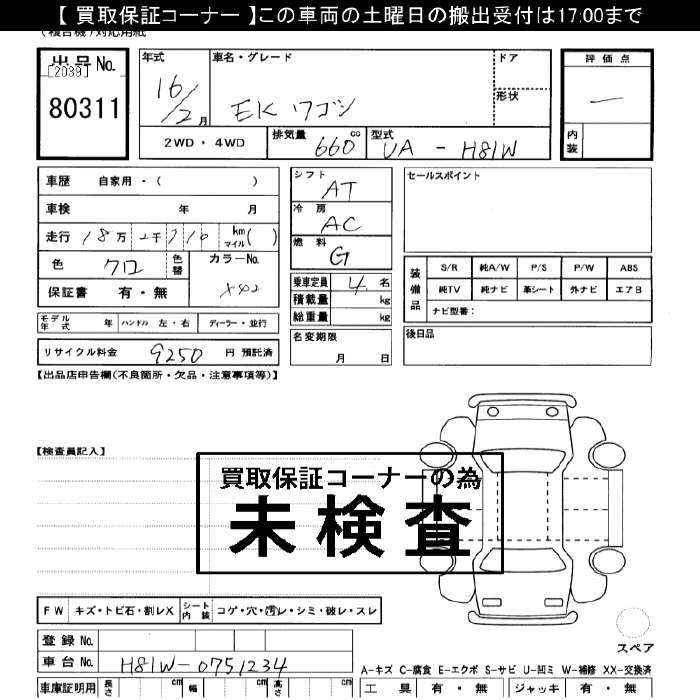 【 買取保証コーナー 】この車両の土曜日の搬出受付は17:00まで
(複合機)対応用紙
出品No.
[2039]
80311
年式
16/2月
車名・グレード
EKワゴン
ドア
形状
評価点
内装
2WD・4WD
排気量 660 cc
型式 UA - H81W
車歴 自家用・( )
車検 年 月
走行 18万2千710 km マイル( )
色 クロ
色替
カラーNo. X42
保証書 有・無
シフト AT
冷房 AC
燃料 G
乗車定員 4 名
積載量 kg
総重量 kg
セールスポイント
装備品
S/R 純A/W P/S P/W ABS
純TV 純ナビ 革シート 外ナビ エアB
ナビ型番:
モデル年式 年 ハンドル 左・右 ディーラー・並行
名変期限 月 日
後日品
リサイクル料金 9250 円 預託済
【出品店申告欄(不良箇所・欠品・注意事項等)】
【検査員記入】
買取保証コーナーの為
未検査
FW キズ・トビ石・割レX シート内装 コゲ・穴・汚レ・シミ・破レ・スレ
登録 No.
車台 No. H81W-0751234
スペア
A-キズ C-腐食 E-エクボ S-サビ U-凹ミ W-補修 XX-交換済
車庫証明用 長さ cm 幅 cm 高さ cm
工具 有・無 ジャッキ 有・無